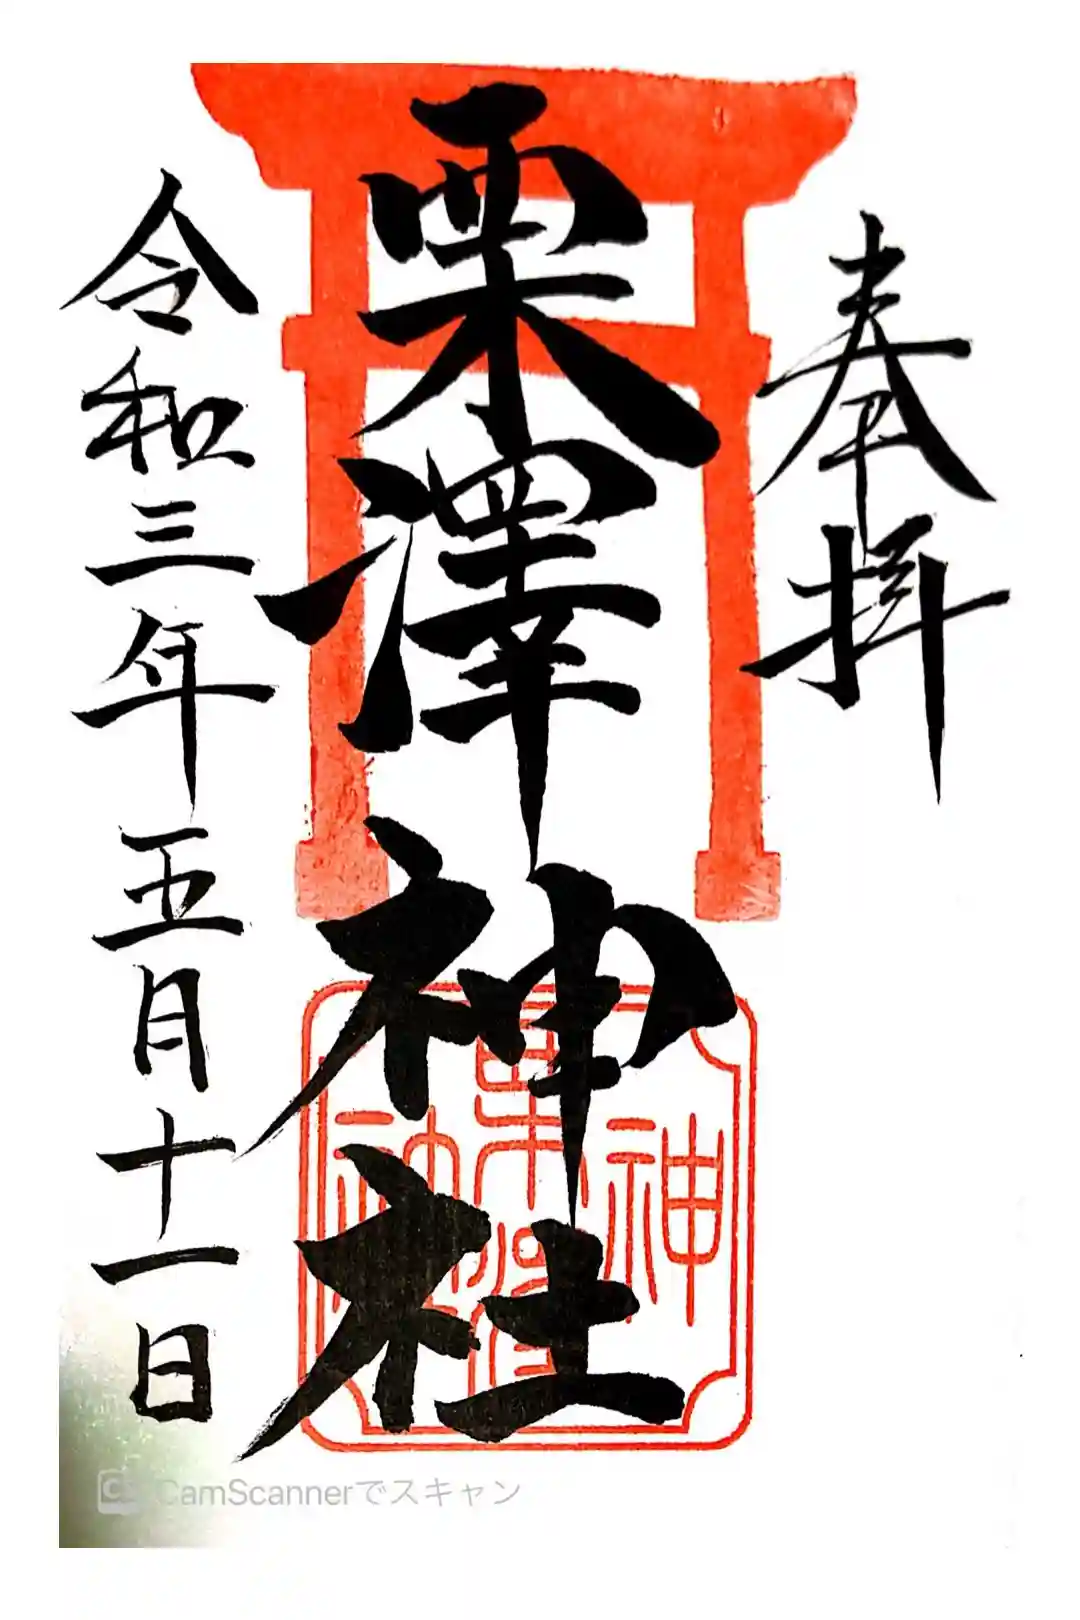 奉拝
栗澤神社
令和三年五月十一日
神
栗澤
社
CamScannerでスキャン